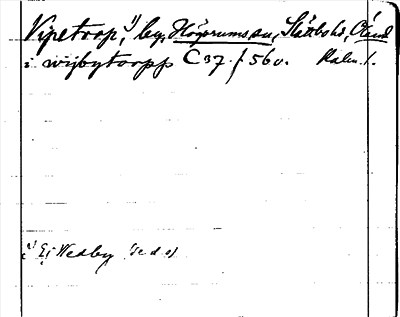 Vipetorp,¹⁾ by, Högsrums sn, Slättbo hd, Öland
i wijbytorpp C 37 f 56 v. Kalm. l.
¹⁾ Ej Wedby (se d. o)